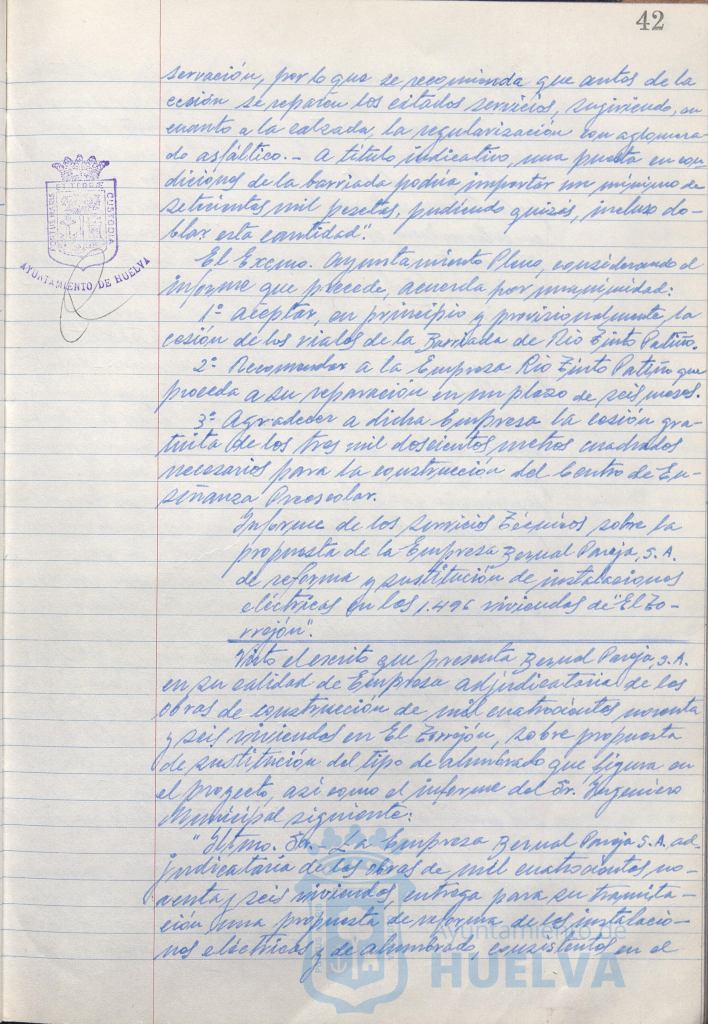 42
servación, por lo que se recomienda que antes de la
cesión se reparen los citados servicios, sugiriendo, en
cuanto a la calzada, la regularización con aglomera-
do asfáltico.- A título indicativo, una puesta en con-
diciones de la barriada podría importar un mínimo de
setecientas mil pesetas, pudiendo quizás, incluso do-
blar esta cantidad".
El Excmo. Ayuntamiento Pleno, considerando el
informe que precede, acuerda por unanimidad:
1º- Aceptar, en principio y provisionalmente, la
cesión de los viales de la Barriada de Rio Tinto Patiño.
2º- Recomendar a la Empresa Rio Tinto Patiño que
proceda a su reparación en un plazo de seis meses.
3º- Agradecer a dicha Empresa la cesión gra-
tuita de los tres mil doscientos metros cuadrados
necesarios para la construcción del Centro de En-
señanza Preescolar.
Informe de los Servicios Técnicos sobre la
propuesta de la Empresa Bernal Pareja, S.A.
de reforma y sustitución de instalaciones
eléctricas en las 1.496 viviendas de "El To-
rrejón".
Visto el escrito que presenta Bernal Pareja, S.A.
en su calidad de Empresa adjudicataria de las
obras de construcción de mil cuatrocientas noventa
y seis viviendas en El Torrejón, sobre propuesta
de sustitución del tipo de alumbrado que figura en
el proyecto, así como el informe del Sr. Ingeniero
Municipal siguiente:
"Iltmo. Sr.- La Empresa Bernal Pareja S.A. ad-
judicataria de las obras de mil cuatrocientas no-
venta y seis viviendas, entrega para su tramita-
ción una propuesta de reforma de las instalacio-
nes eléctricas y de alumbrado, consistentes en el
CUSTODIA
AYUNTAMIENTO DE HUELVA
Ayuntamiento de
HUELVA